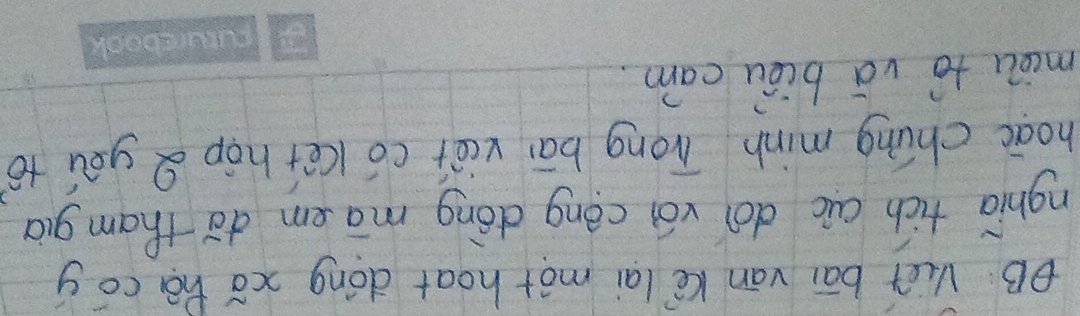 ĐB: Viết bài văn kể lại một hoạt động xã hội có ý
nghĩa tích cực đối với cộng đồng mà em đã tham gia
hoặc chứng minh Trong bài viết có kết hợp 2 yếu tố
miêu tả và biểu cảm.
Futurebook